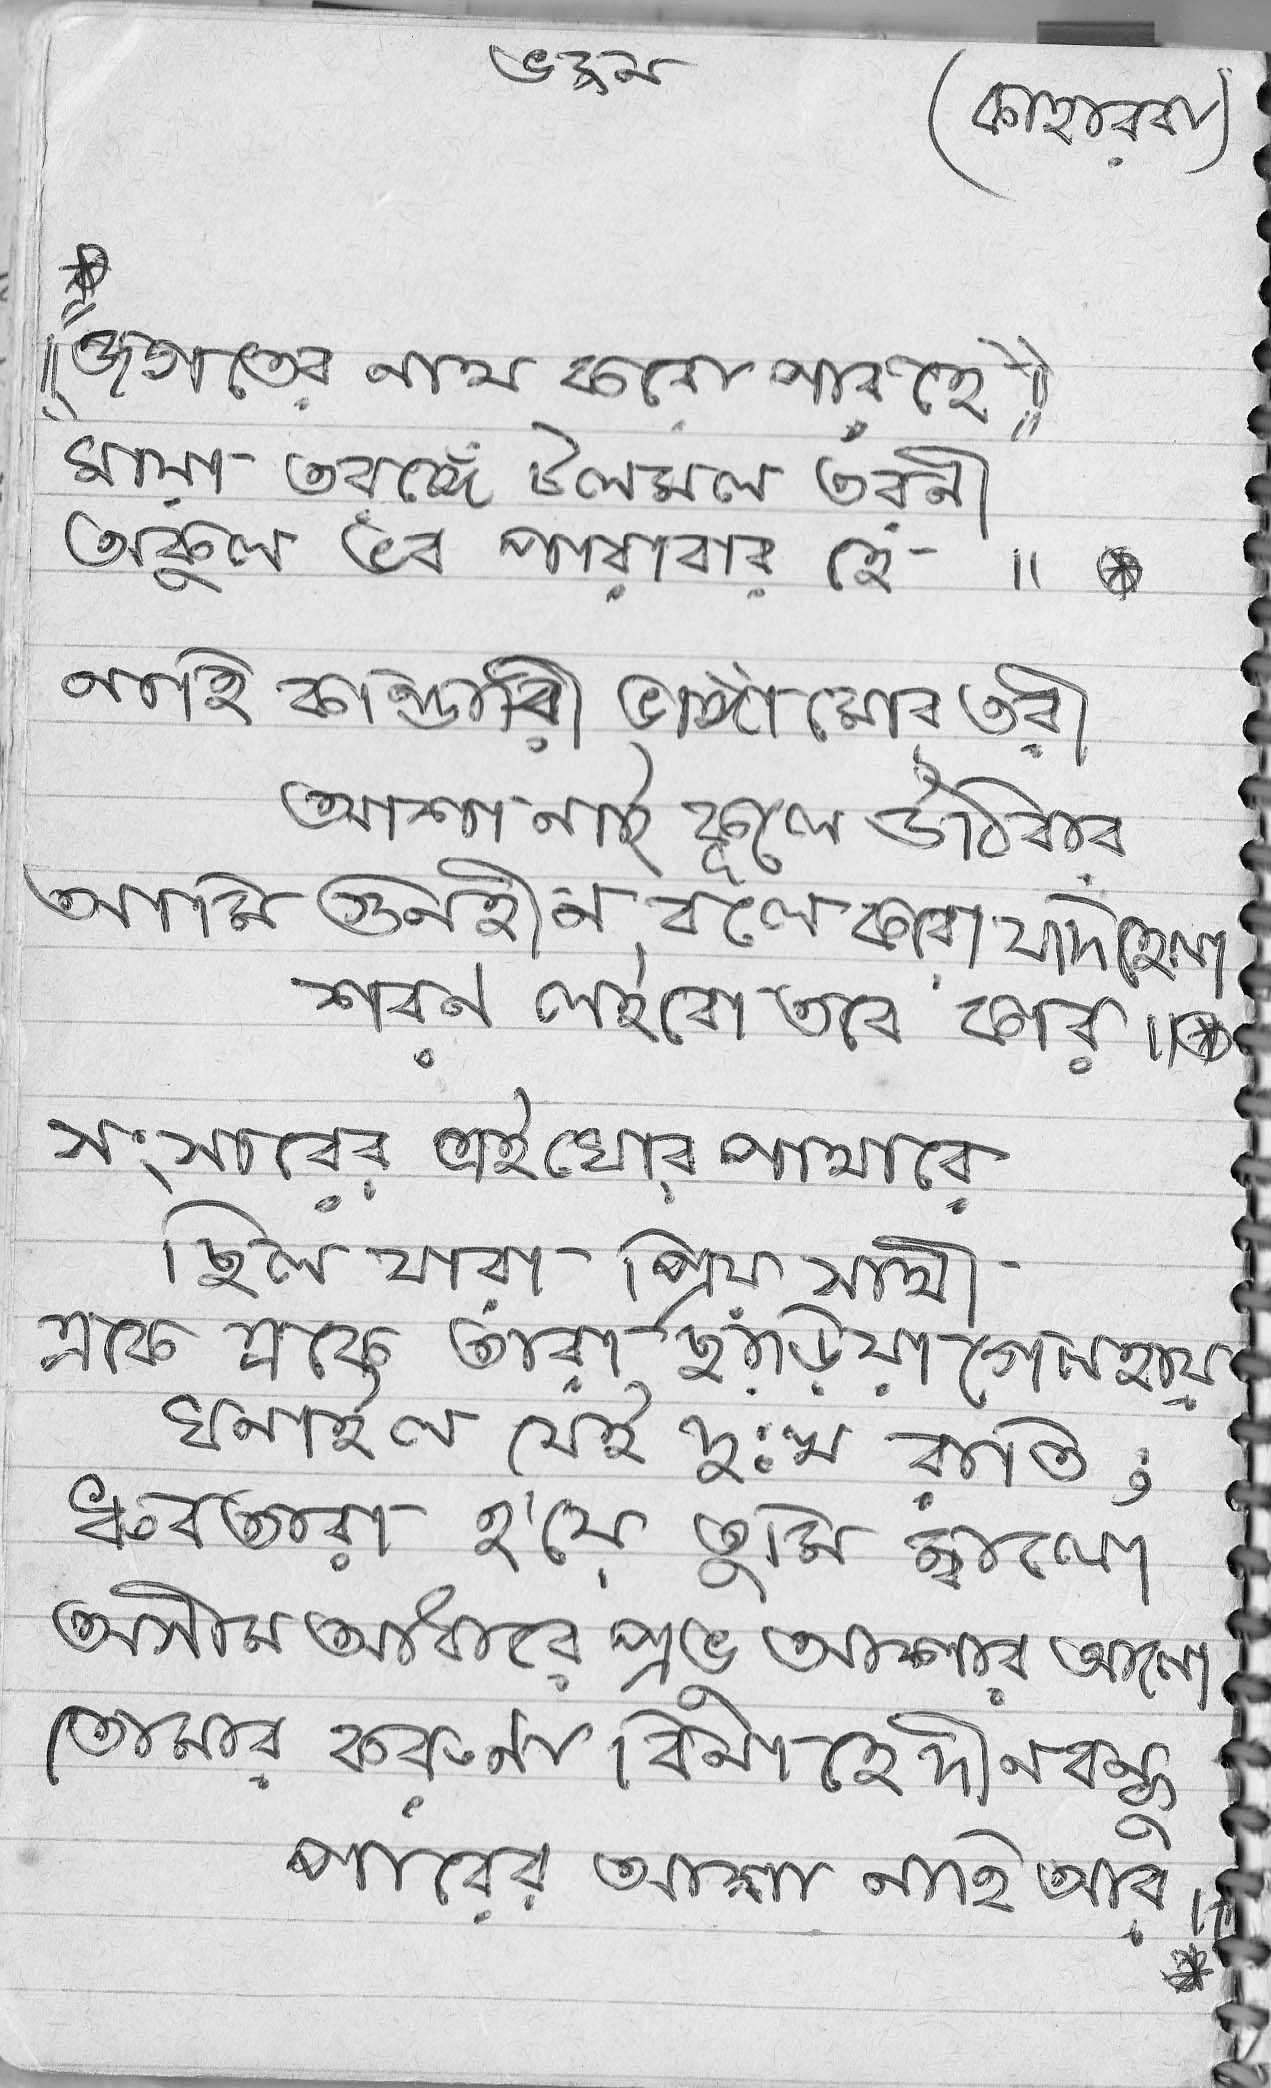 ভজন
(কাহারবা)
॥ জগতের নাথ করো পার হে ॥
মায়া তরঙ্গে টলমল তরনী
অকুল ভব পারাবার হে ॥
নাহি কান্ডারী ভাঙ্গা মোর তরী
আশা নাই কূলে উঠিবার
আমি গুনহীন বলে করো যদি হেলা
শরন লইবো তবে কার ॥
সংসারের এই ঘোর পাথারে
ছিল যারা প্রিয় সাথী
একে একে তারা ছাড়িয়া গেল হায়
ঘনাইল যেই দুঃখ রাতি ;
ধ্রুবতারা হ'য়ে তুমি জ্বালো
অসীম আঁধারে প্রভু আশার আলো
তোমার করুনা বিনা হে দীনবন্ধু
পারের আশা নাহি আর ॥